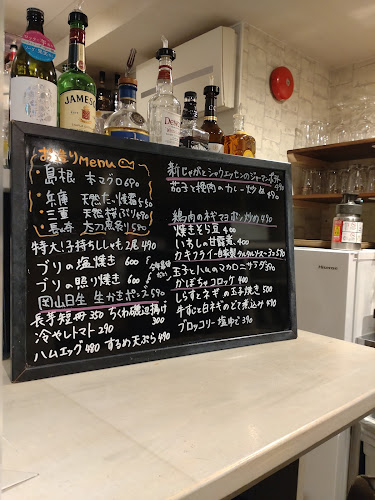 JAMESON
Dewar's
おすすめMenu
島根 本マグロ 690
兵庫 天然たい 550
三重 天然 ぶり 690
長崎 590
特大!子持ちししゃも2尾 490
ブリの塩焼き 600
ブリの照り焼き 600
岡山日生 生かきポン酢 590
長芋短冊 350 ちくわ磯辺揚げ 300
冷やしトマト 290
ハムエッグ 480 するめ天ぷら 490
新じゃがとシャウエッセンのジャーマンポテト
茄子と挽肉のカレー炒め
鶏肉のネギマヨポン炒め 490
焼きそら豆 400
いちじく甘露煮 400
カキフライ-自家製タルタルソース- 3コ 570
玉子とハムのマカロニサラダ 390
かぼちゃコロッケ 400
しらすとネギの玉子焼き 500
牛すじと白ネギのどて煮込み 590
ブロッコリー塩ゆで 390
Hisense